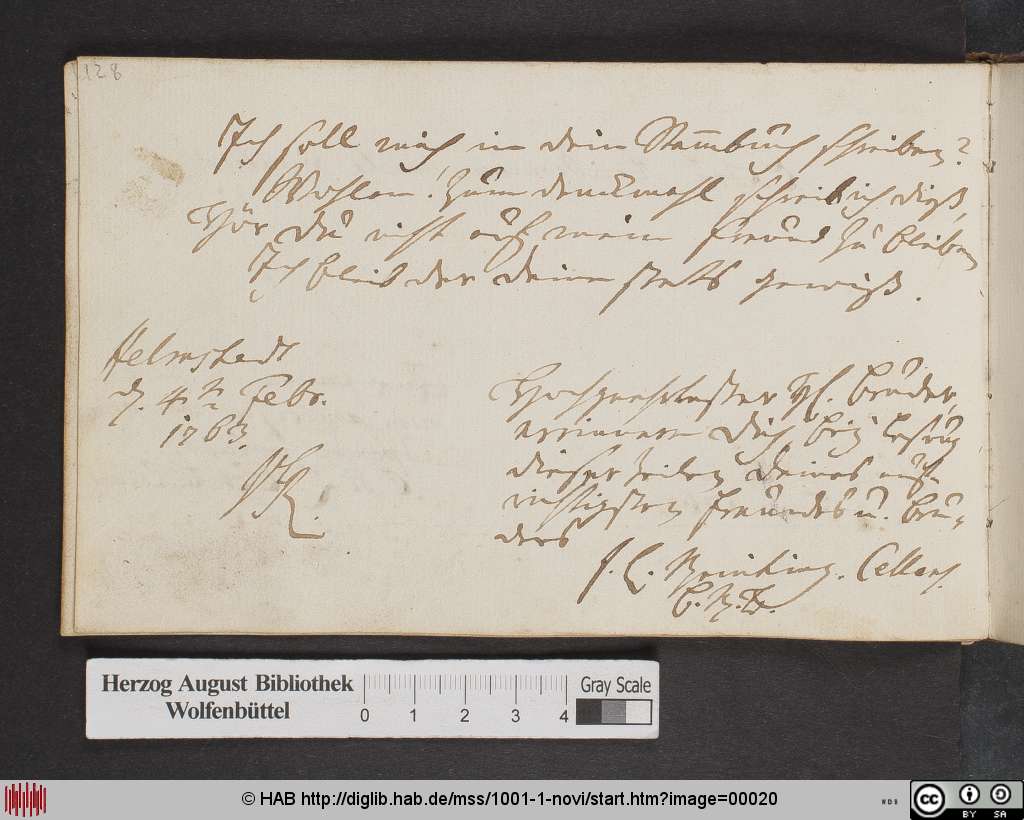 128
Ich soll mich in dein Stam̅buch schreiben?
Wohlan! zum denckmahl schreib ich diß,
Hör du nicht auf, mein Freund zu bleiben
Ich bleib der deine stets gewiß.
Helmstedt
d. 4ten Febr.
1763.
Hochgeehrtester H. Bruder,
erinnere dich bey lesung
dieser Zeilen deines auf-
richtigsten Freundes u. Bru-
ders
Cellens.
Herzog August Bibliothek
Wolfenbüttel
0 1 2 3 4
Gray Scale
© HAB http://diglib.hab.de/mss/1001-1-novi/start.htm?image=00020
WDB
cc BY SA